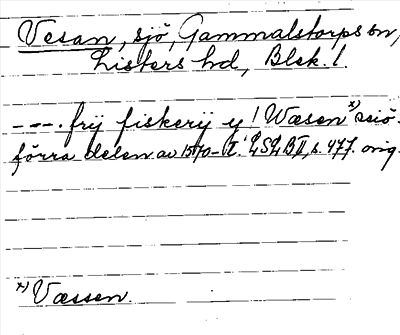 Vesan, sjö, Gammalstorps sn,
Listers hd, Blek. l.
---. frij fiskerij y! Wæsen x) siö.
förra delen av 1570-t. LSLB II, s. 477. orig.
x) Væssen.